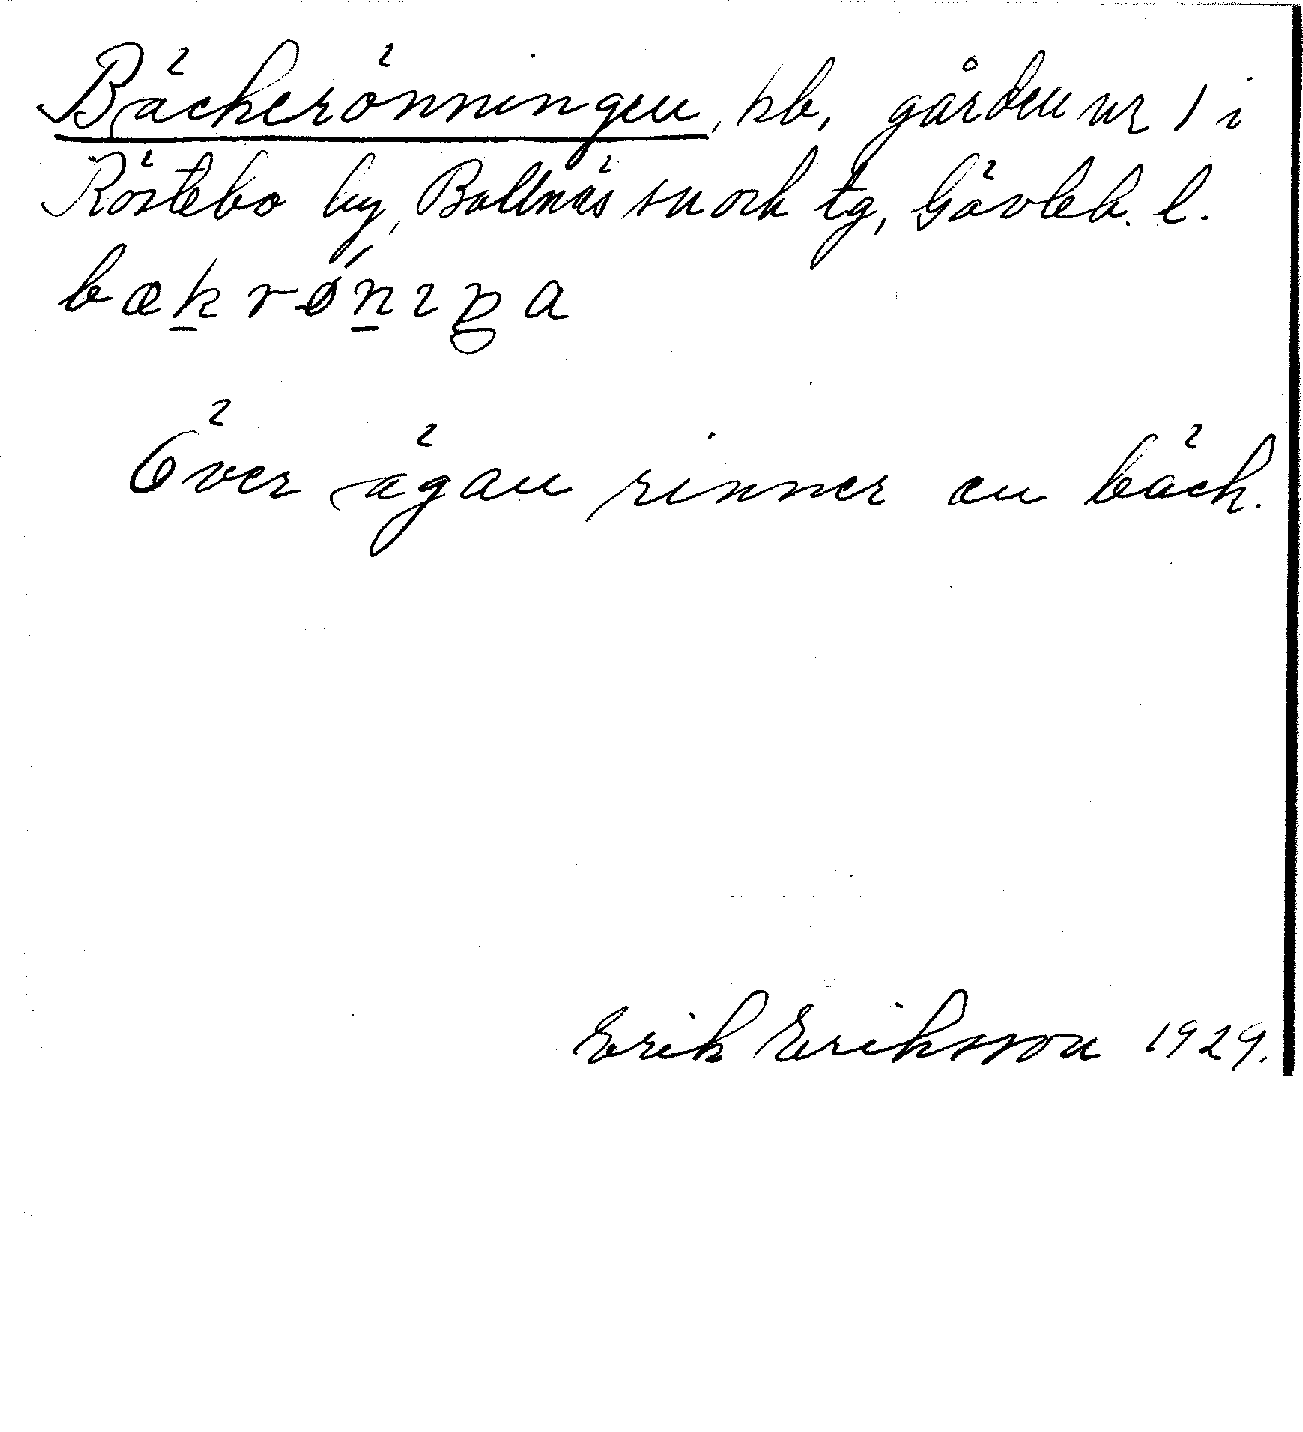 Bäckerönningen, hb, gården nr 1 i
Röstebo by, Bollnäs sn och tg, Gävleb. l.
bækrǿnıŋa
Över ägan rinner en bäck.
Erik Eriksson 1929.